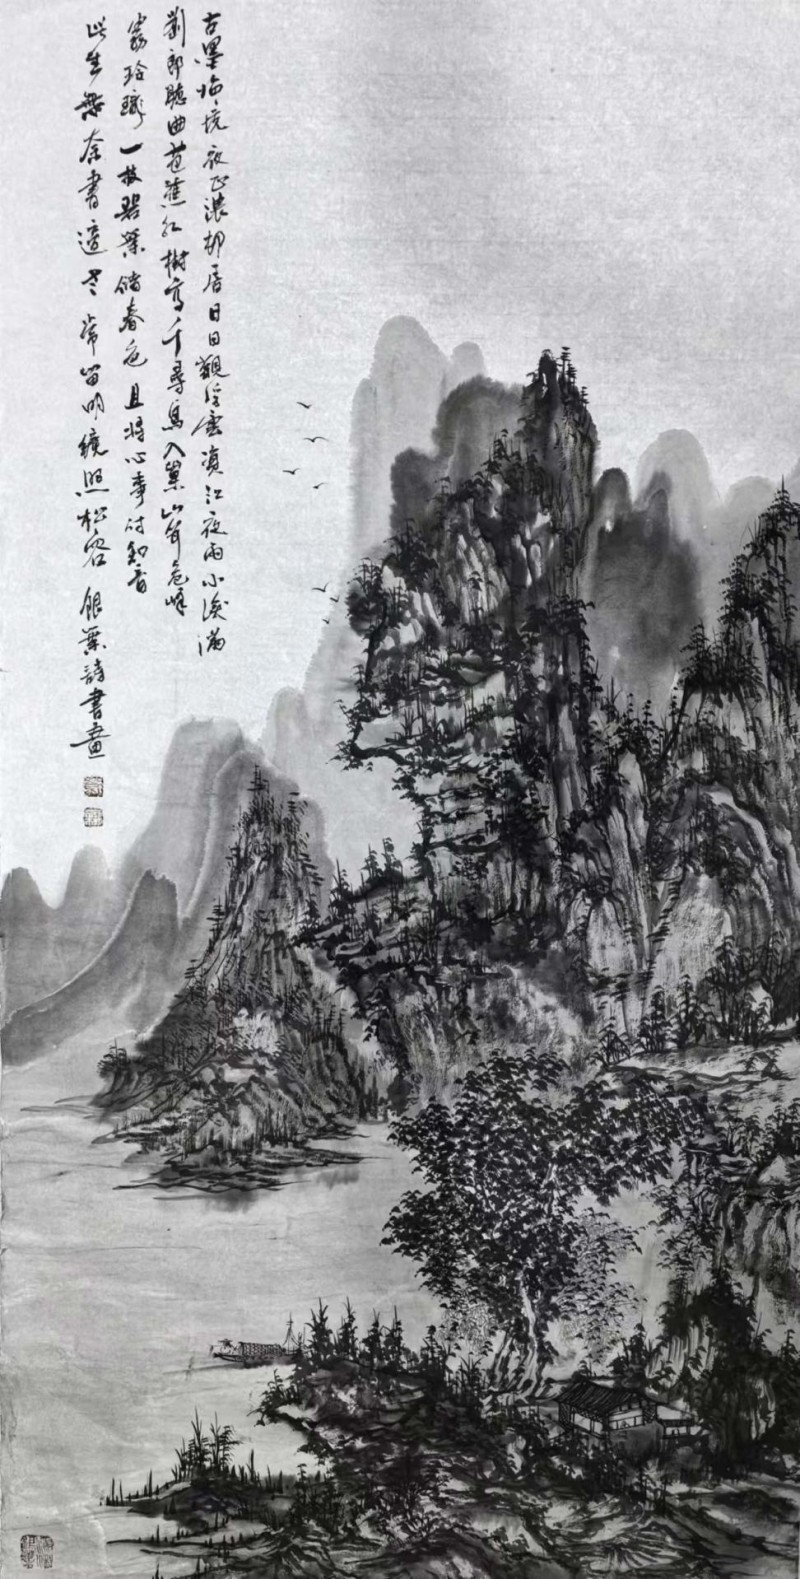 古墨临境夜正浓柳居日日观浮云滇江夜雨小溪满
刘郎听曲芭蕉红树高千寻鸟入巢山有危峰
雾玲珑一枝碧叶储春色且将心事付知音
此生无奈书适之常留明镜照松容 银叶诗书画